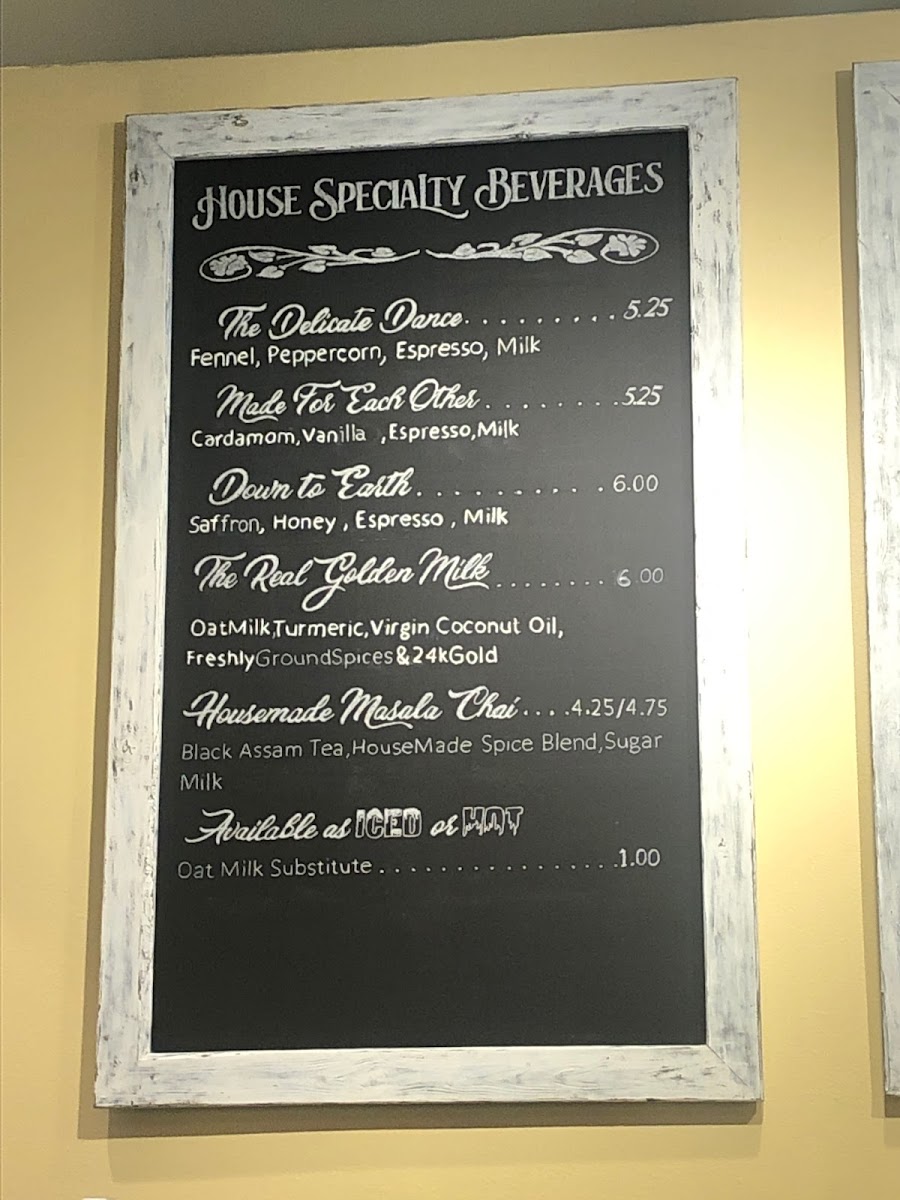 House Specialty Beverages
The Delicate Dance.........5.25
Fennel, Peppercorn, Espresso, Milk
Made For Each Other........5.25
Cardamom,Vanilla ,Espresso,Milk
Down to Earth..........6.00
Saffron, Honey , Espresso , Milk
The Real Golden Milk........6.00
OatMilk,Turmeric,Virgin Coconut Oil,
FreshlyGroundSpices&24kGold
Housemade Masala Chai....4.25/4.75
Black Assam Tea,HouseMade Spice Blend,Sugar
Milk
Available as ICED or HOT
Oat Milk Substitute................1.00